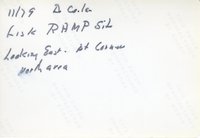 11/79
Lisk RAMP Site
Looking East. At Corner
North area